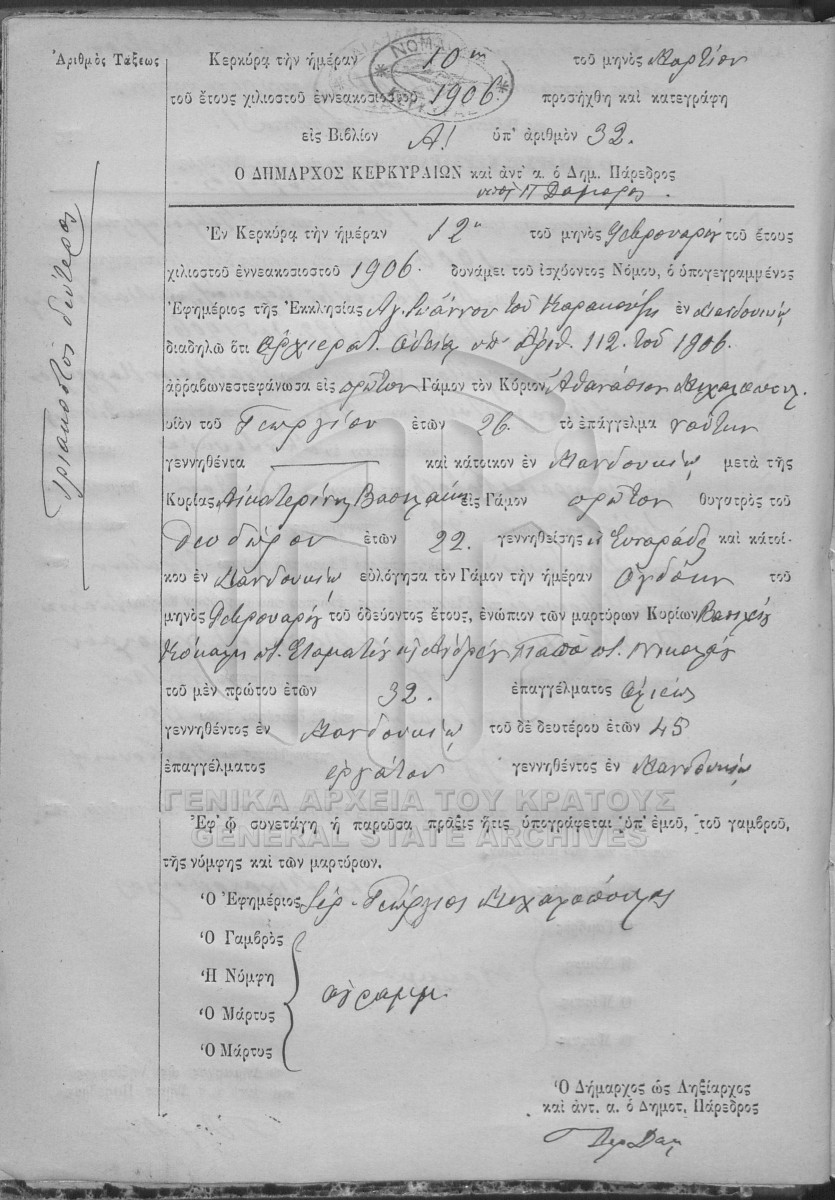 Ἀριθμὸς Τάξεως
Τριακοστὸς δεύτερος
Κερκύρᾳ τὴν ἡμέραν 10ην τοῦ μηνὸς Μαρτίου
τοῦ ἔτους χιλιοστοῦ ἐννεακοσιοστοῦ 1906. προσήχθη καὶ κατεγράφη
εἰς Βιβλίον Α! ὑπ' ἀριθμὸν 32.
Ὁ ΔΗΜΑΡΧΟΣ ΚΕΡΚΥΡΑΙΩΝ καὶ ἀντ' α. ὁ Δημ. Πάρεδρος
Ἐν Κερκύρᾳ τὴν ἡμέραν 12η τοῦ μηνὸς Φεβρουαρίου τοῦ ἔτους
χιλιοστοῦ ἐννεακοσιοστοῦ 1906. δυνάμει τοῦ ἰσχύοντος Νόμου, ὁ ὑπογεγραμμένος
Ἐφημέριος τῆς Ἐκκλησίας Ἁγ. Ἰωάννου τοῦ ἐν Μανδουκίῳ
διαδηλῶ ὅτι ἀρχιερατ. ἀδείᾳ ὑπ' ἀριθ. 112. τοῦ 1906.
ἀρραβωνεστεφάνωσα εἰς πρῶτον Γάμον τὸν Κύριον Ἀθανάσιον Μιχαλόπουλ.
υἱὸν τοῦ Γεωργίου ἐτῶν 26 τὸ ἐπάγγελμα ναύτην
γεννηθέντα καὶ κάτοικον ἐν Μανδουκίῳ μετὰ τῆς
Κυρίας Αἰκατερίνης Βασιλάκη εἰς Γάμον πρῶτον θυγατρὸς τοῦ
Θεοδώρου ἐτῶν 22. γεννηθείσης καὶ κατοί-
κου ἐν Μανδουκίῳ εὐλόγησα τὸν Γάμον τὴν ἡμέραν ὀγδόην τοῦ
μηνὸς Φεβρουαρίου τοῦ ὁδεύοντος ἔτους, ἐνώπιον τῶν μαρτύρων Κυρίων Βασιλείου
Κόκαλη ποτ. Σταματίου κ' Ἀνδρέου Παππᾶ ποτ. Νικολάου
τοῦ μὲν πρώτου ἐτῶν 32. ἐπαγγέλματος ἁλιέως
γεννηθέντος ἐν Μανδουκίῳ τοῦ δὲ δευτέρου ἐτῶν 45
ἐπαγγέλματος ἐργάτου γεννηθέντος ἐν Μανδουκίῳ
ΓΕΝΙΚΑ ΑΡΧΕΙΑ ΤΟΥ ΚΡΑΤΟΥΣ
Ἐφ' ᾧ συνετάγη ἡ παροῦσα πρᾶξις ἥτις ὑπογράφεται ὑπ' ἐμοῦ, τοῦ γαμβροῦ,
GENERAL STATE ARCHIVES
τῆς νύμφης καὶ τῶν μαρτύρων.
Ὁ Ἐφημέριος Ἱερ. Γεώργιος Μιχαλόπουλος
Ὁ Γαμβρὸς
Ἡ Νύμφη
ἀγράμμ.
Ὁ Μάρτυς
Ὁ Μάρτυς
Ὁ Δήμαρχος ὡς Ληξίαρχος
καὶ ἀντ. α. ὁ Δημοτ. Πάρεδρος